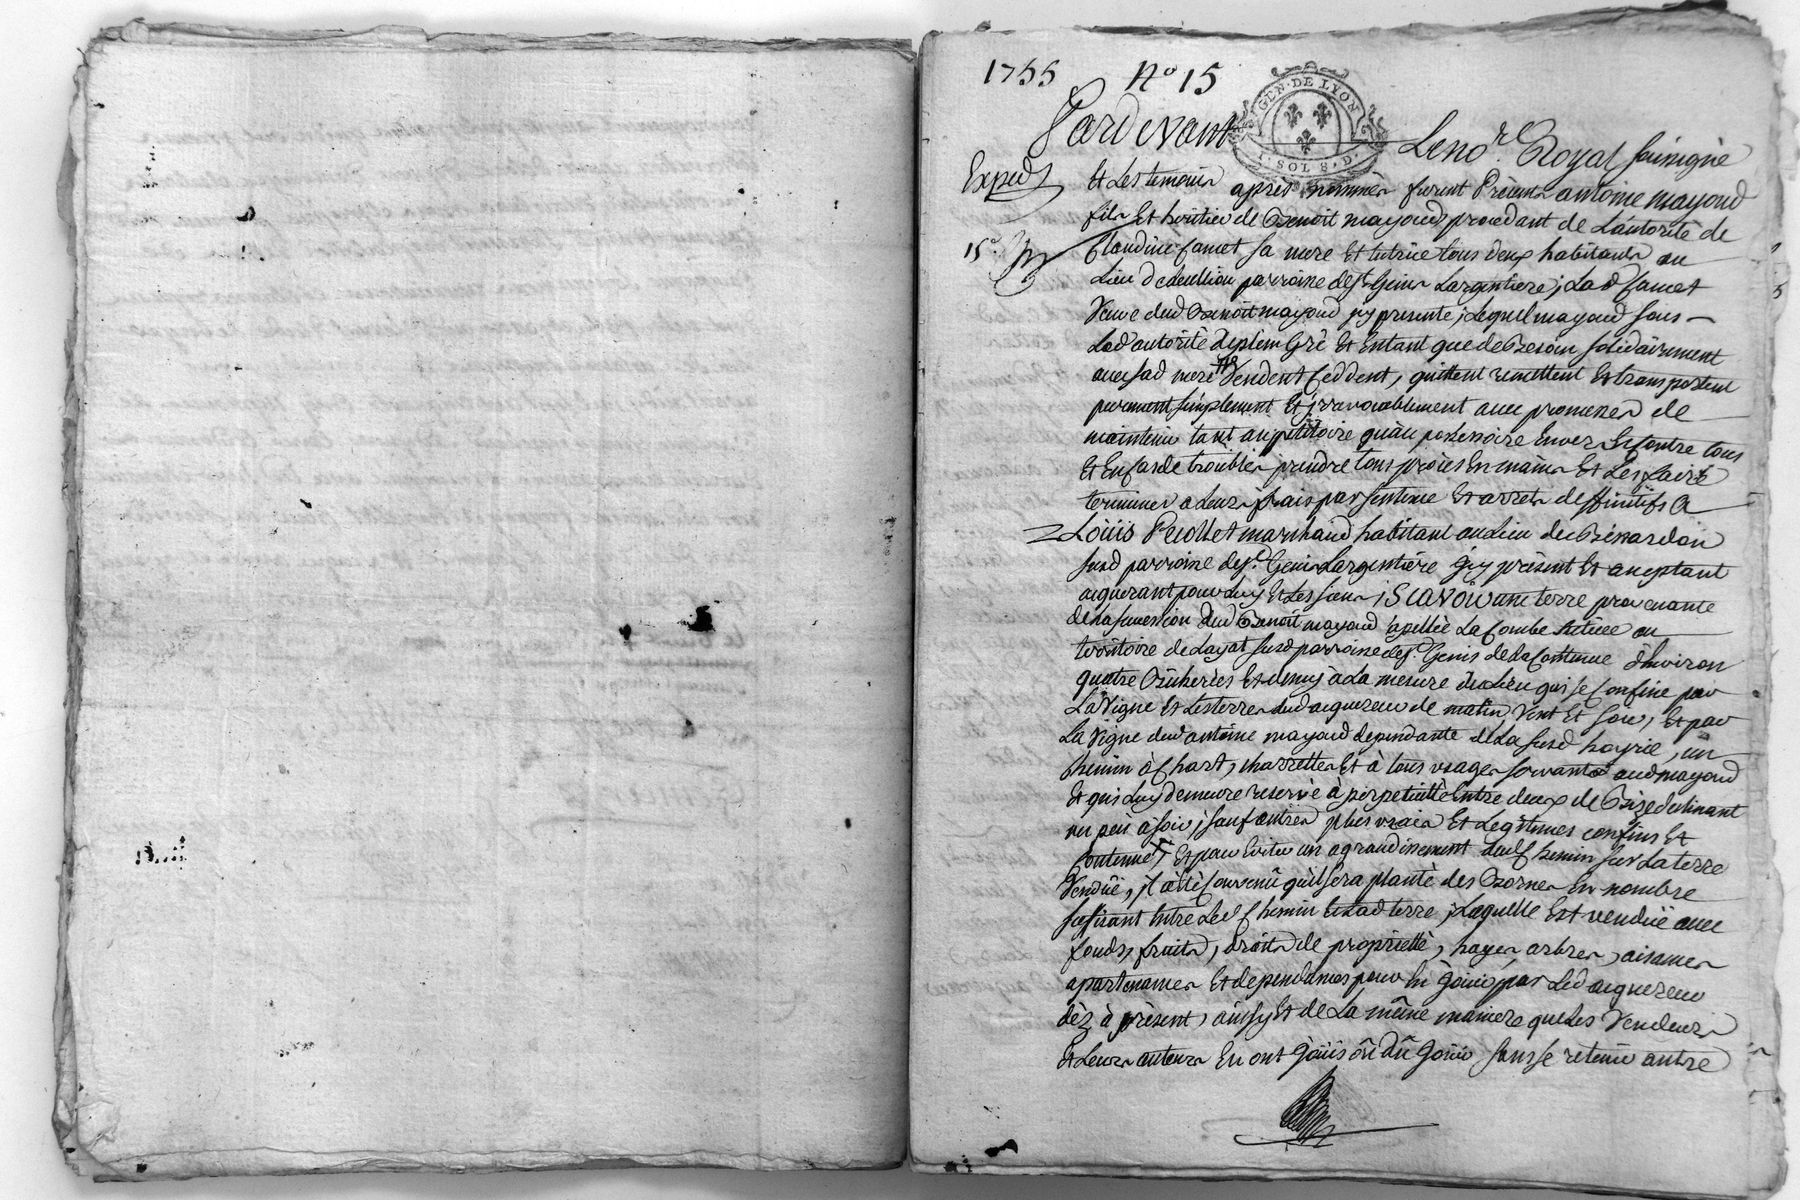 1755 No 15
GEN. DE LYON
1. SOL 8. D.
Pardevant Le no.re Royal soussigné
Exped
Et Les temoins après nommés furent Présents antoine mayoud
fils Et héritier de Benoit mayoud, procedant de L'autorité de
15
Claudine Comet sa mere Et tutrice tous deux habitants au
Lieu de parroisse de St Genis Largentiere; Lad.
Veuve dud Benoit mayoud jcy presente; Lequel mayoud sous
Lad autorité de plein Gré Et Entant que de Besoin solidairement
avec sad mere Vendent Ceddent, quittent remettent Et transportent
purement simplement Et jrrevocablement avec promesses de
maintenir tant au pétitoire qu'au possessoire Envers Et Contre tous
Et En Cas de troubles prendre tous procès En mains Et Les faire
terminer a Leurs frais par sentence Et arrets deffinitifs A
Louis marchand habitant au Lieu de Bénardon
susd parroisse de St. Genis Largentière jcy présent Et aceptant
aquerant pour Luy Et Les siens; SCAVOIR une terre provenante
de La succession dud Benoit mayoud apellée La Combe scituée au
territoire de Layat susd parroisse de St. Genis de La Contenue d'Environ
quatre Bicherées Et demy à La mesure du Lieu qui se Confine par
La Vigne Et Les terres dud aquereur de matin, Vent Et soir, Et par
La Vigne dud antoine mayoud dependante de La susd hoyrie, un
Chemin à Chart, charrettes Et à tous usages servants aud mayoud
Et qui Luy demeure reservé à perpetuitté Entre deux de Bize declinant
un peu à soir; sauf autres plus vrais Et Legitimes confins Et
Contenue; Et pour Eviter un agrandissement dud Chemin sur La terre
Vendüe, jl a Eté Convenû qu'il sera planté des Bornes En nombre
suffisant Entre Led Chemin Et Lad terre; Laquelle Est vendüe avec
fonds, fruits, droits de proprietté, hayes arbres, aisances
apartenances Et dependances pour En joüir par Led aquereur
dèz à présent, ainsy Et de La même maniere que Les Vendeurs
Et Leurs auteurs En ont joüis où dû joüir sans se retenir autre